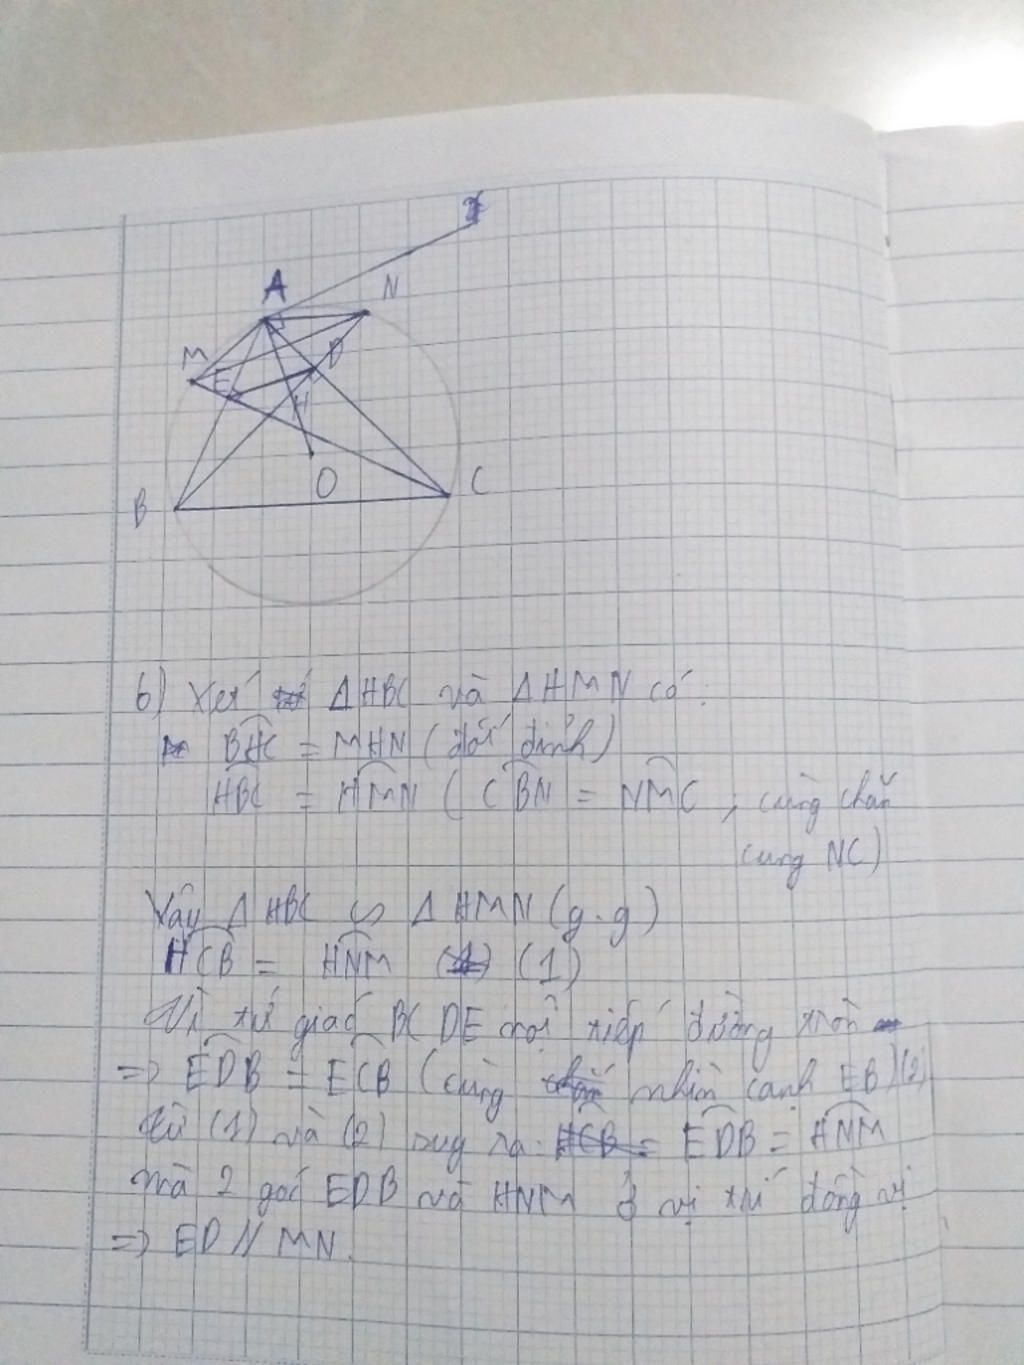 x
A
N
M
D
E
H
O
B
C
b) Xét ΔHBC và ΔHMN có:
BHC = MHN (đối đỉnh)
HBC = HMN ( CBN = NMC ; cùng chắn
cung NC)
Vậy ΔHBC ∽ ΔHMN (g.g)
HCB = HNM (1)
Vì tứ giác BCDE nội tiếp đường tròn
=> EDB = ECB (cùng nhìn cạnh EB) (2)
từ (1) và (2) suy ra: EDB = HNM
mà 2 góc EDB và HNM ở vị trí đồng vị
=> ED // MN.